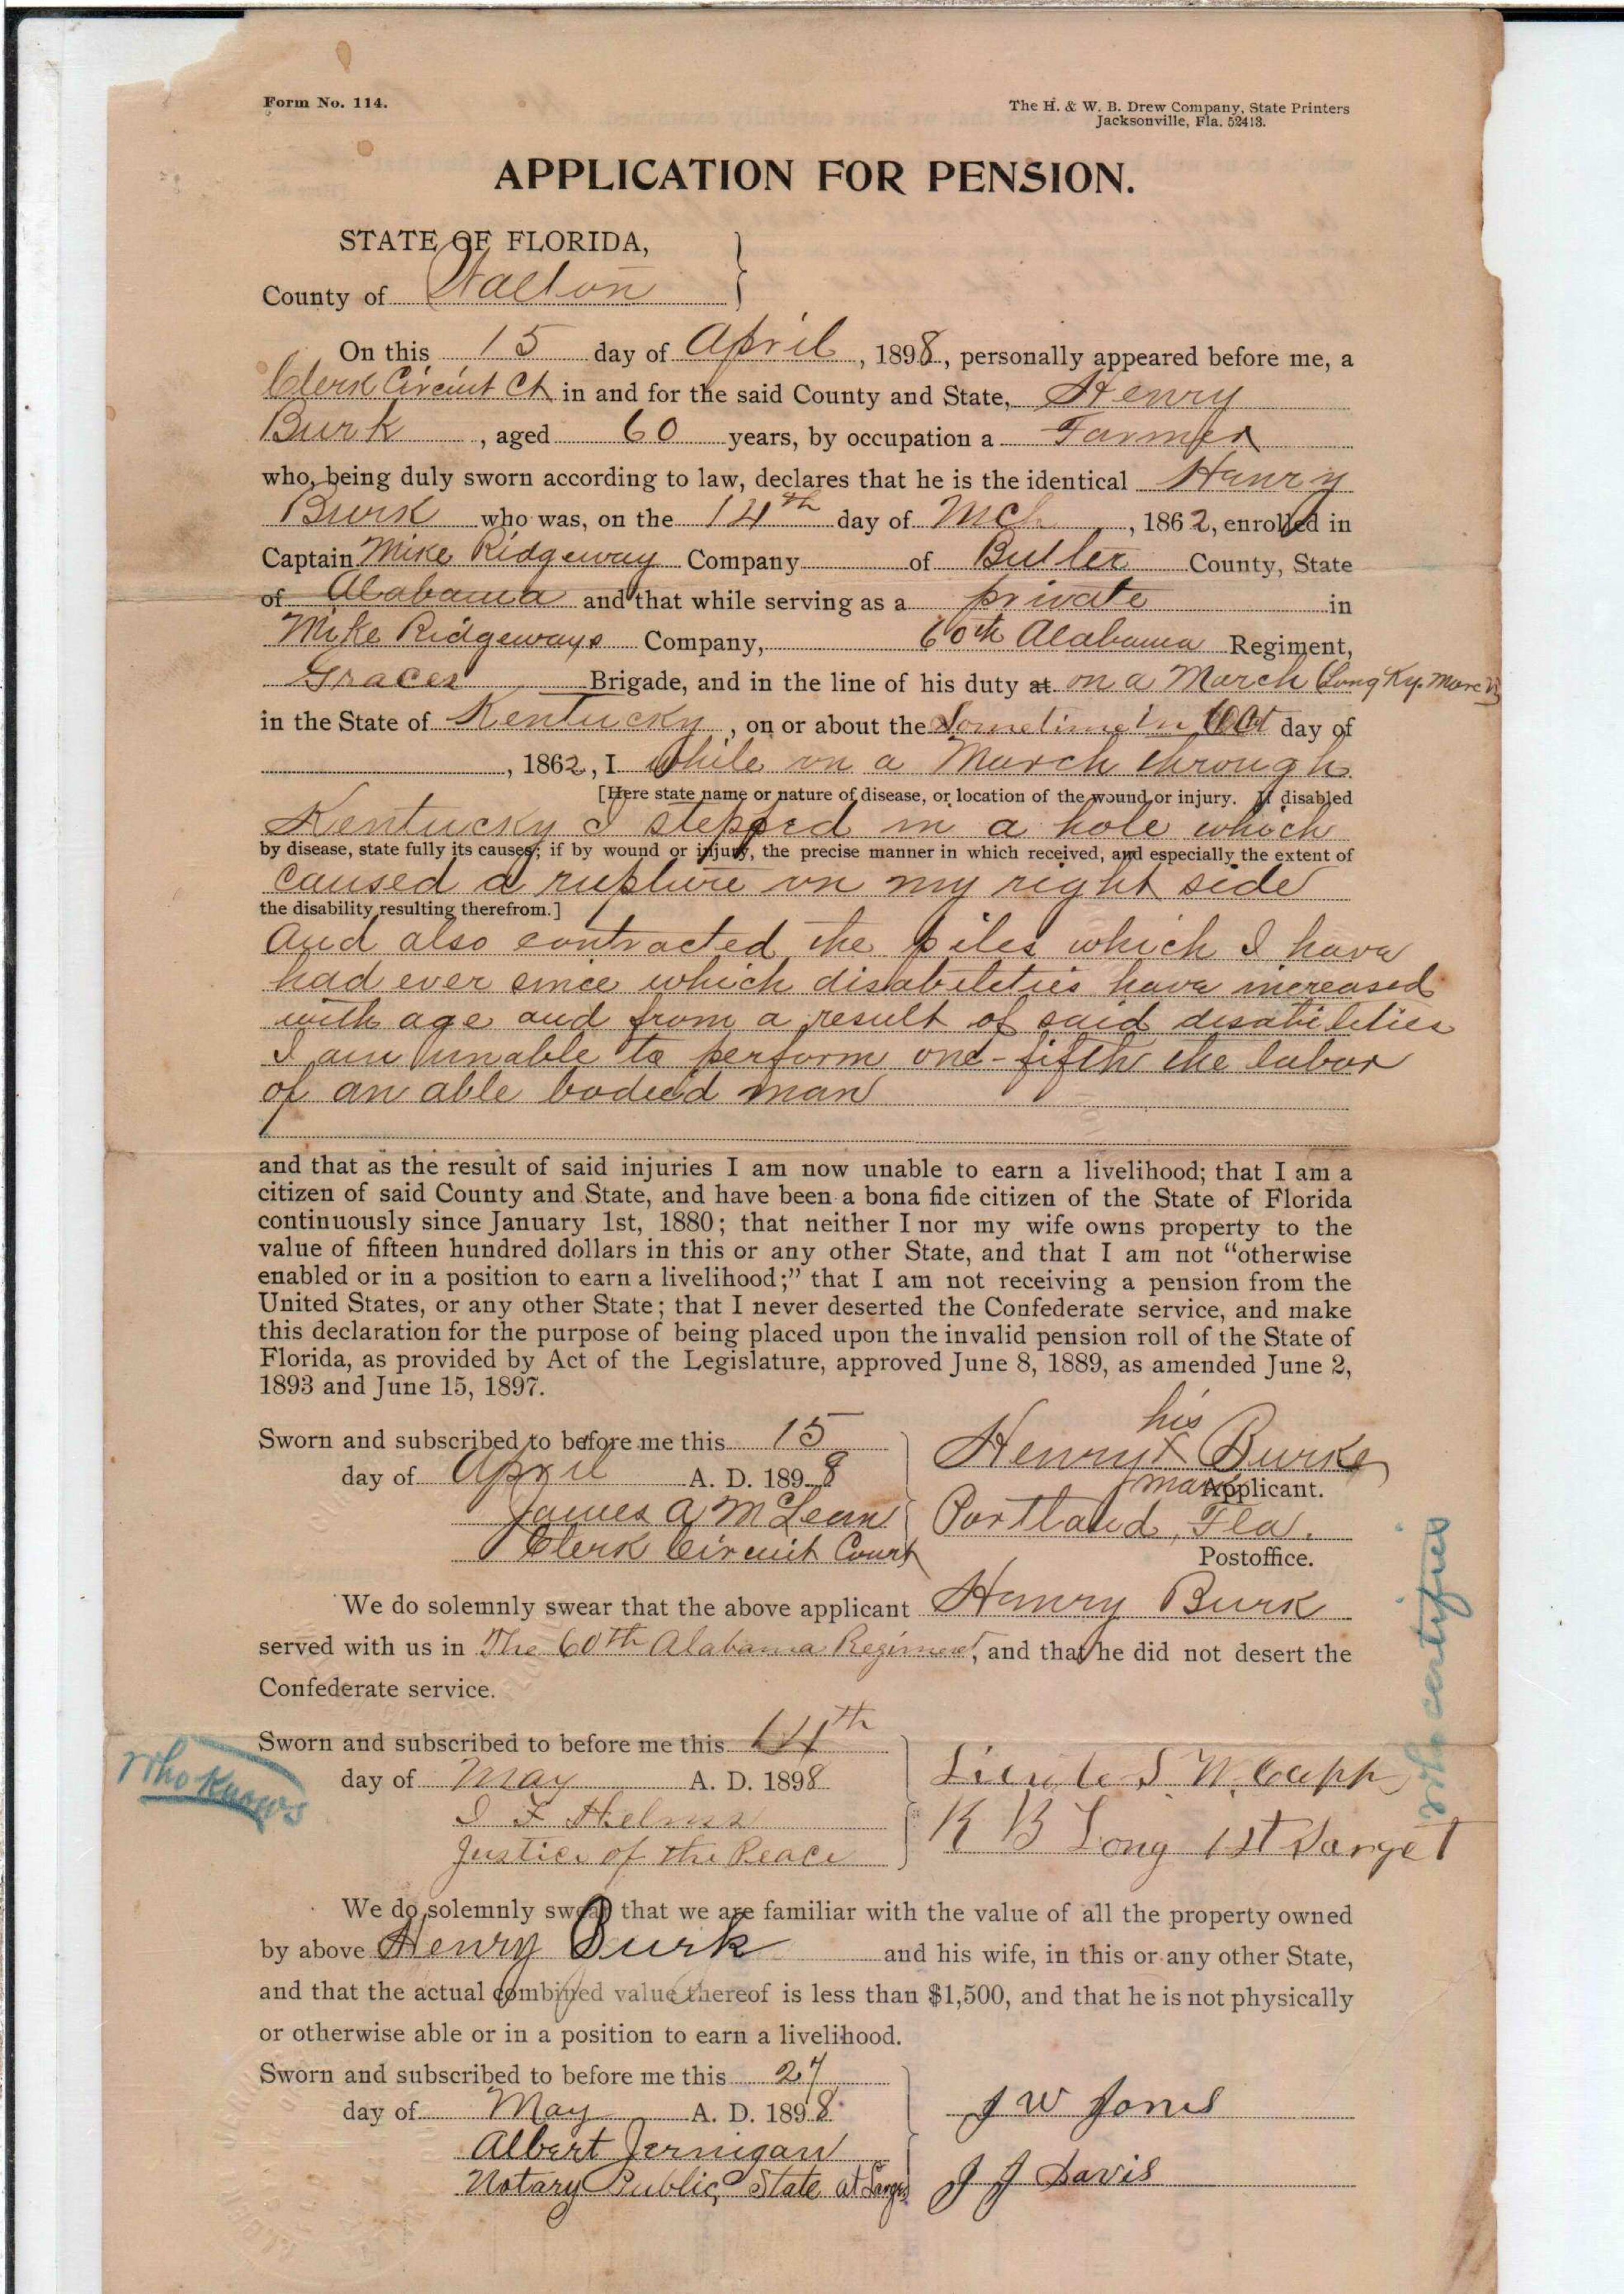 Form No. 114.
The H. & W. B. Drew Company, State Printers
Jacksonville, Fla. 52413.
APPLICATION FOR PENSION.
STATE OF FLORIDA,
County of Walton
On this 15 day of April, 1898, personally appeared before me, a
Clerk Circuit Ct in and for the said County and State, Henry
Burk, aged 60 years, by occupation a Farmer
who, being duly sworn according to law, declares that he is the identical Henry
Burk who was, on the 14th day of Mch, 1862, enrolled in
Captain Mike Ridgeway Company of Butler County, State
of Alabama and that while serving as a private in
Mike Ridgeways Company, 60th Alabama Regiment,
Graces Brigade, and in the line of his duty at on a March Long Ky. March
in the State of Kentucky, on or about the Sometime in Oct day of
, 1862, I while on a March through
[Here state name or nature of disease, or location of the wound or injury. If disabled
Kentucky I stepped in a hole which
by disease, state fully its causes; if by wound or injury, the precise manner in which received, and especially the extent of
caused a rupture on my right side
the disability resulting therefrom.]
and also contracted the piles which I have
had ever since which disabilities have increased
with age and from a result of said disabilities
I am unable to perform one-fifth the labor
of an able bodied man
and that as the result of said injuries I am now unable to earn a livelihood; that I am a
citizen of said County and State, and have been a bona fide citizen of the State of Florida
continuously since January 1st, 1880; that neither I nor my wife owns property to the
value of fifteen hundred dollars in this or any other State, and that I am not "otherwise
enabled or in a position to earn a livelihood;" that I am not receiving a pension from the
United States, or any other State; that I never deserted the Confederate service, and make
this declaration for the purpose of being placed upon the invalid pension roll of the State of
Florida, as provided by Act of the Legislature, approved June 8, 1889, as amended June 2,
1893 and June 15, 1897.
Sworn and subscribed to before me this 15
day of April A. D. 1898
James A McLean
Clerk Circuit Court
his
Henry X Burke
mark
Applicant.
Portland, Fla.
Postoffice.
We do solemnly swear that the above applicant Henry Burk
served with us in The 60th Alabama Regiment, and that he did not desert the
Confederate service.
Sworn and subscribed to before me this 14th
day of May A. D. 1898
I F Helms
Justice of the Peace
S. W. Capps
R B Long 1st Sarget
Who Knows
Who certifies
We do solemnly swear that we are familiar with the value of all the property owned
by above Henry Burk and his wife, in this or any other State,
and that the actual combined value thereof is less than $1,500, and that he is not physically
or otherwise able or in a position to earn a livelihood.
Sworn and subscribed to before me this 27
day of May A. D. 1898
Albert Jernigan
Notary Public, State at Large
J W Jones
J J Davis